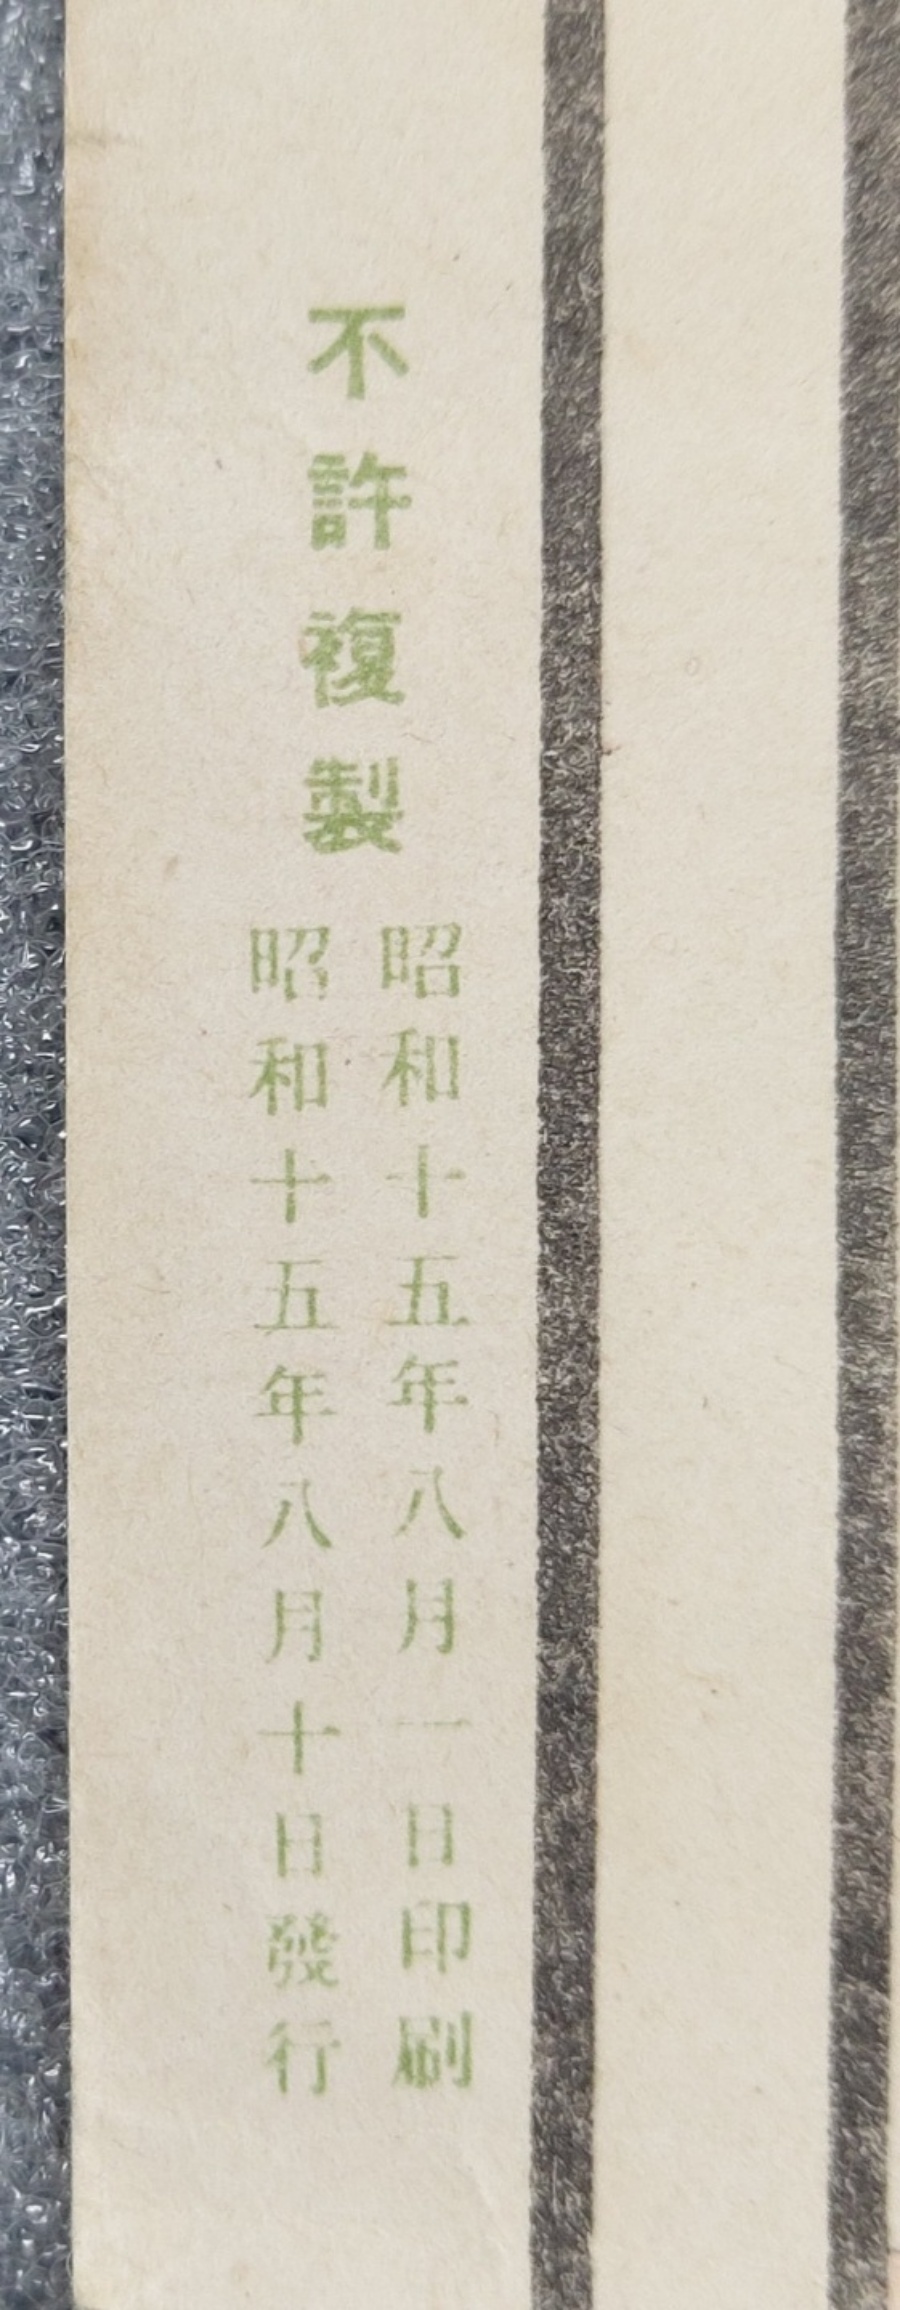 不許複製
昭和十五年八月一日印刷
昭和十五年八月十日發行